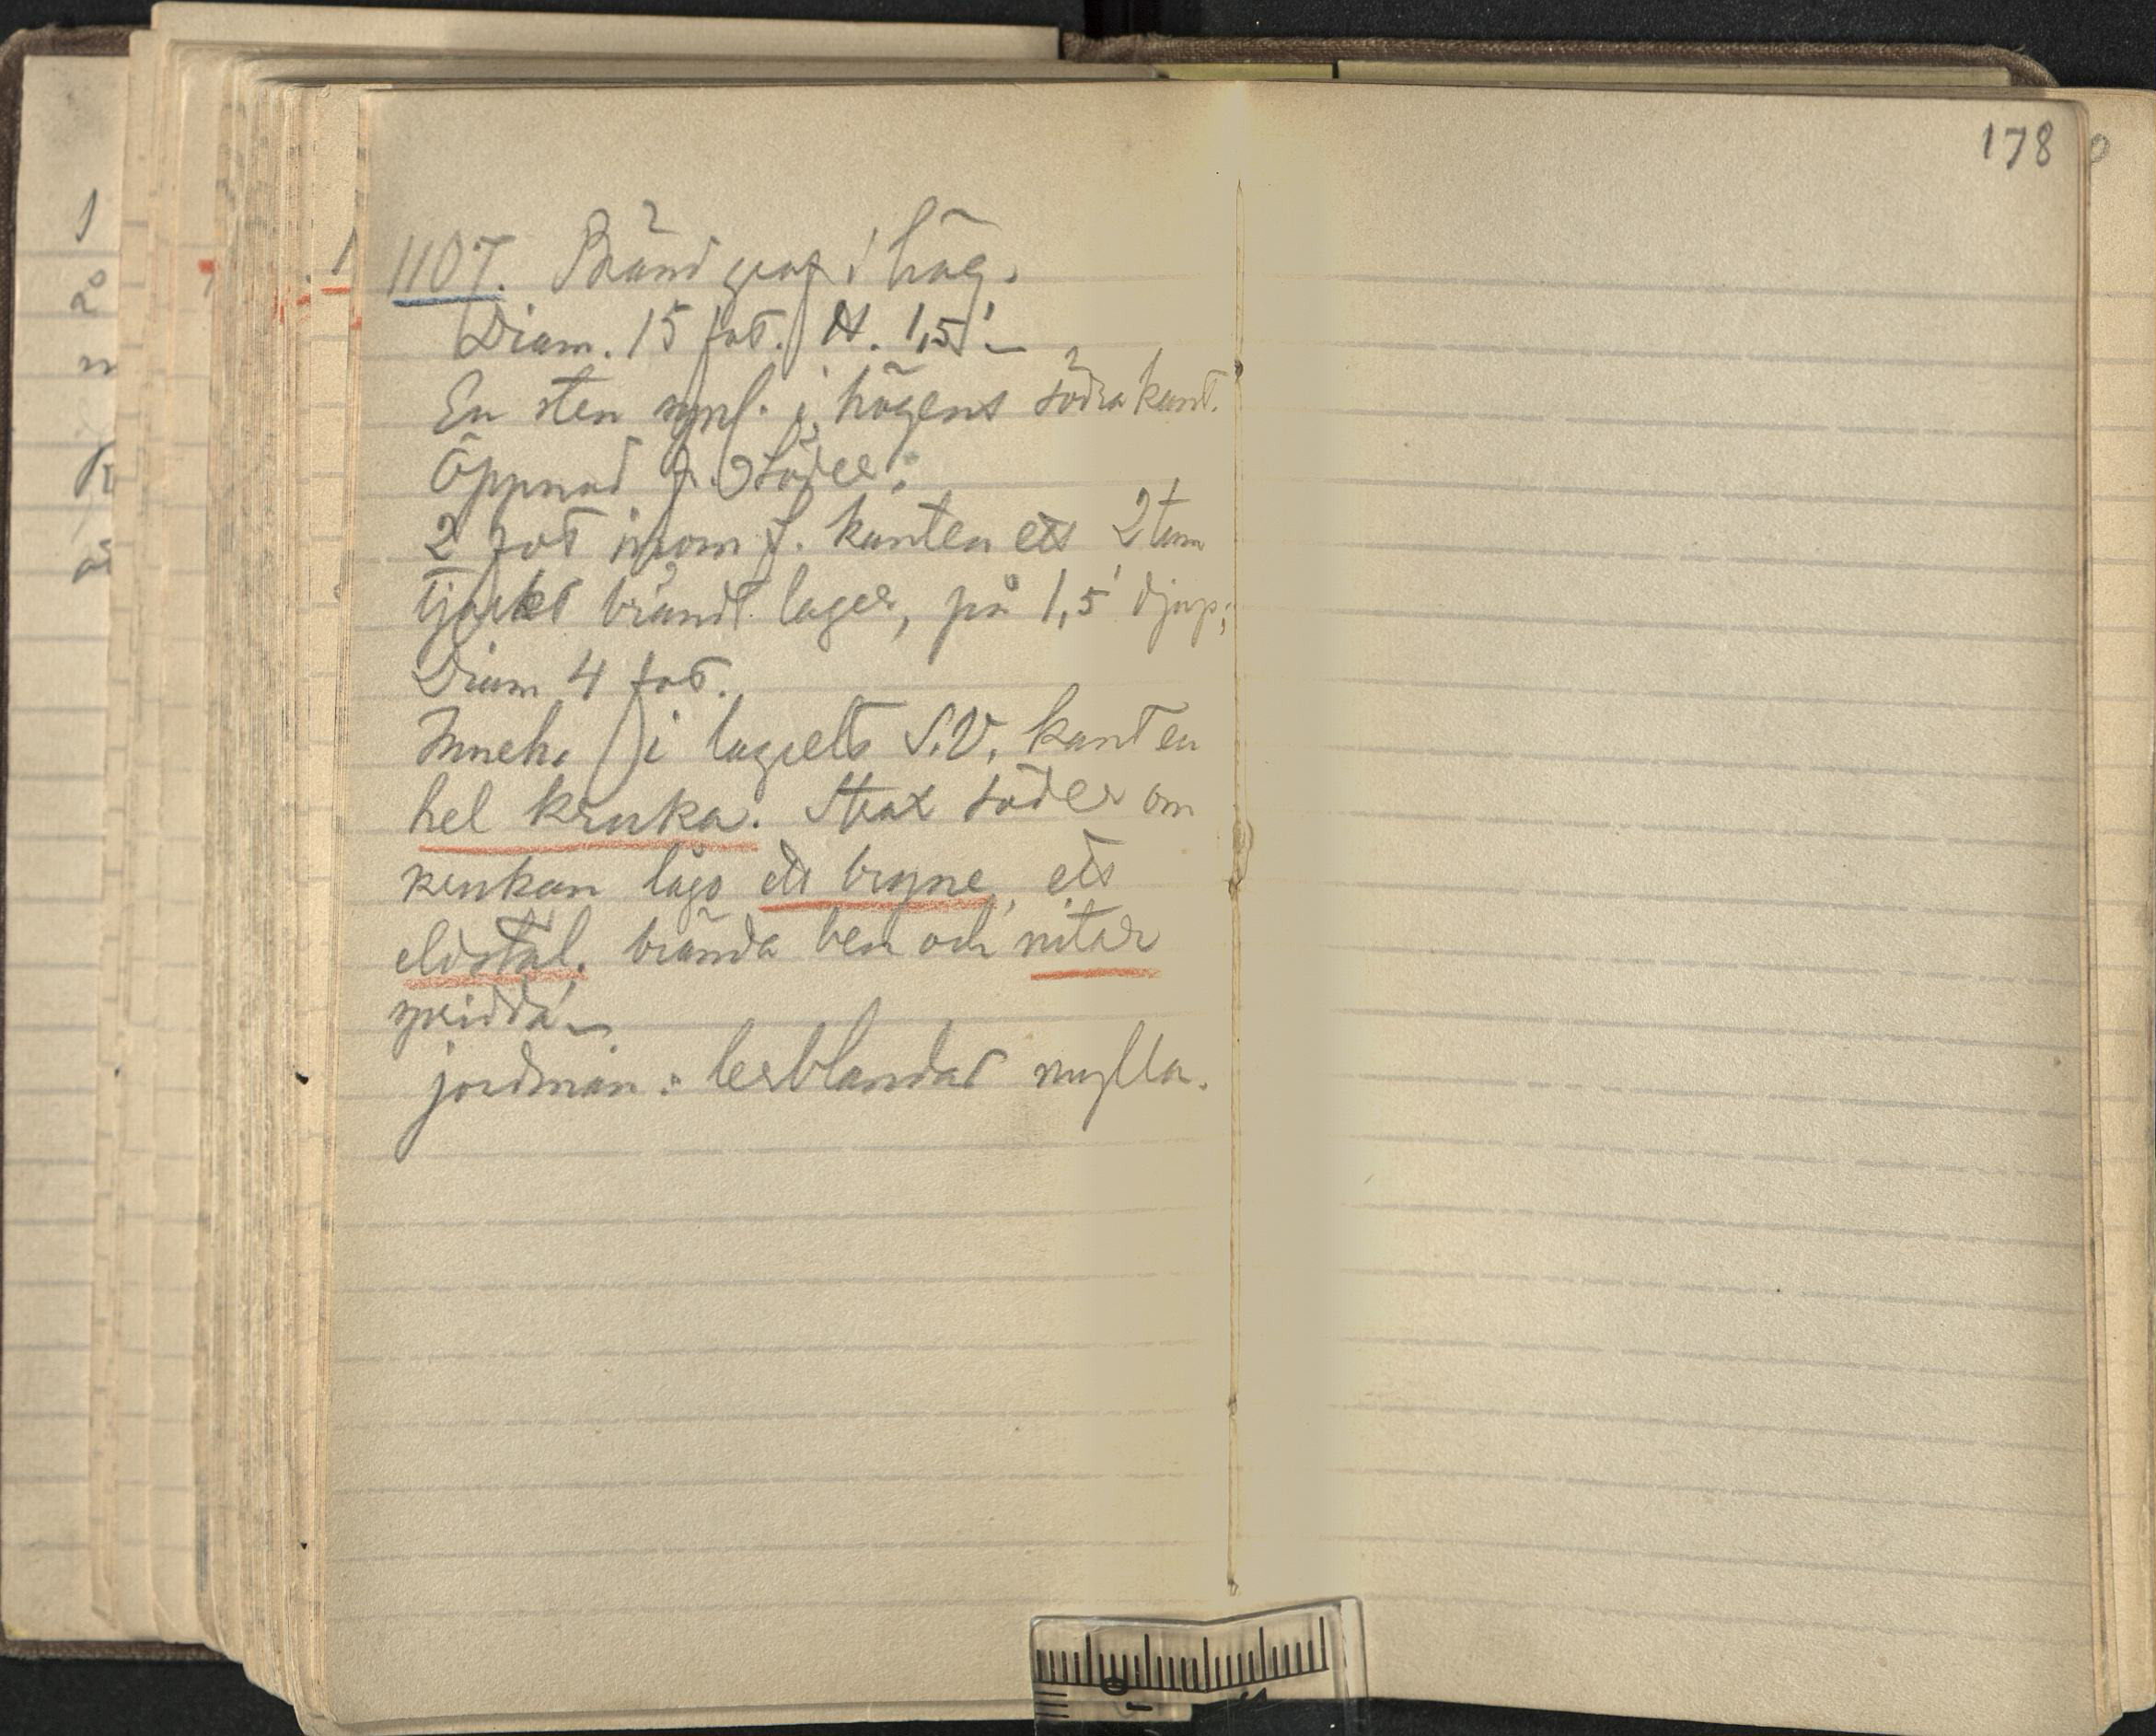 1107. Bränd graf i hög.
Diam. 15 fot. H. 1,5'
En sten synl. i högens södra kant.
Öppnad fr. söder.
2 fot inom f. kanten ett 2 tum
tjockt brändt lager, på 1,5' djup;
Diam 4 fot.
Inneh. i lagrets S.V. kant en
hel kruka. Strax söder om
krukan lågo ett bryne, ett
eldstål. brända ben och nitar
spridda
jordmån: lerblandad mylla.
178